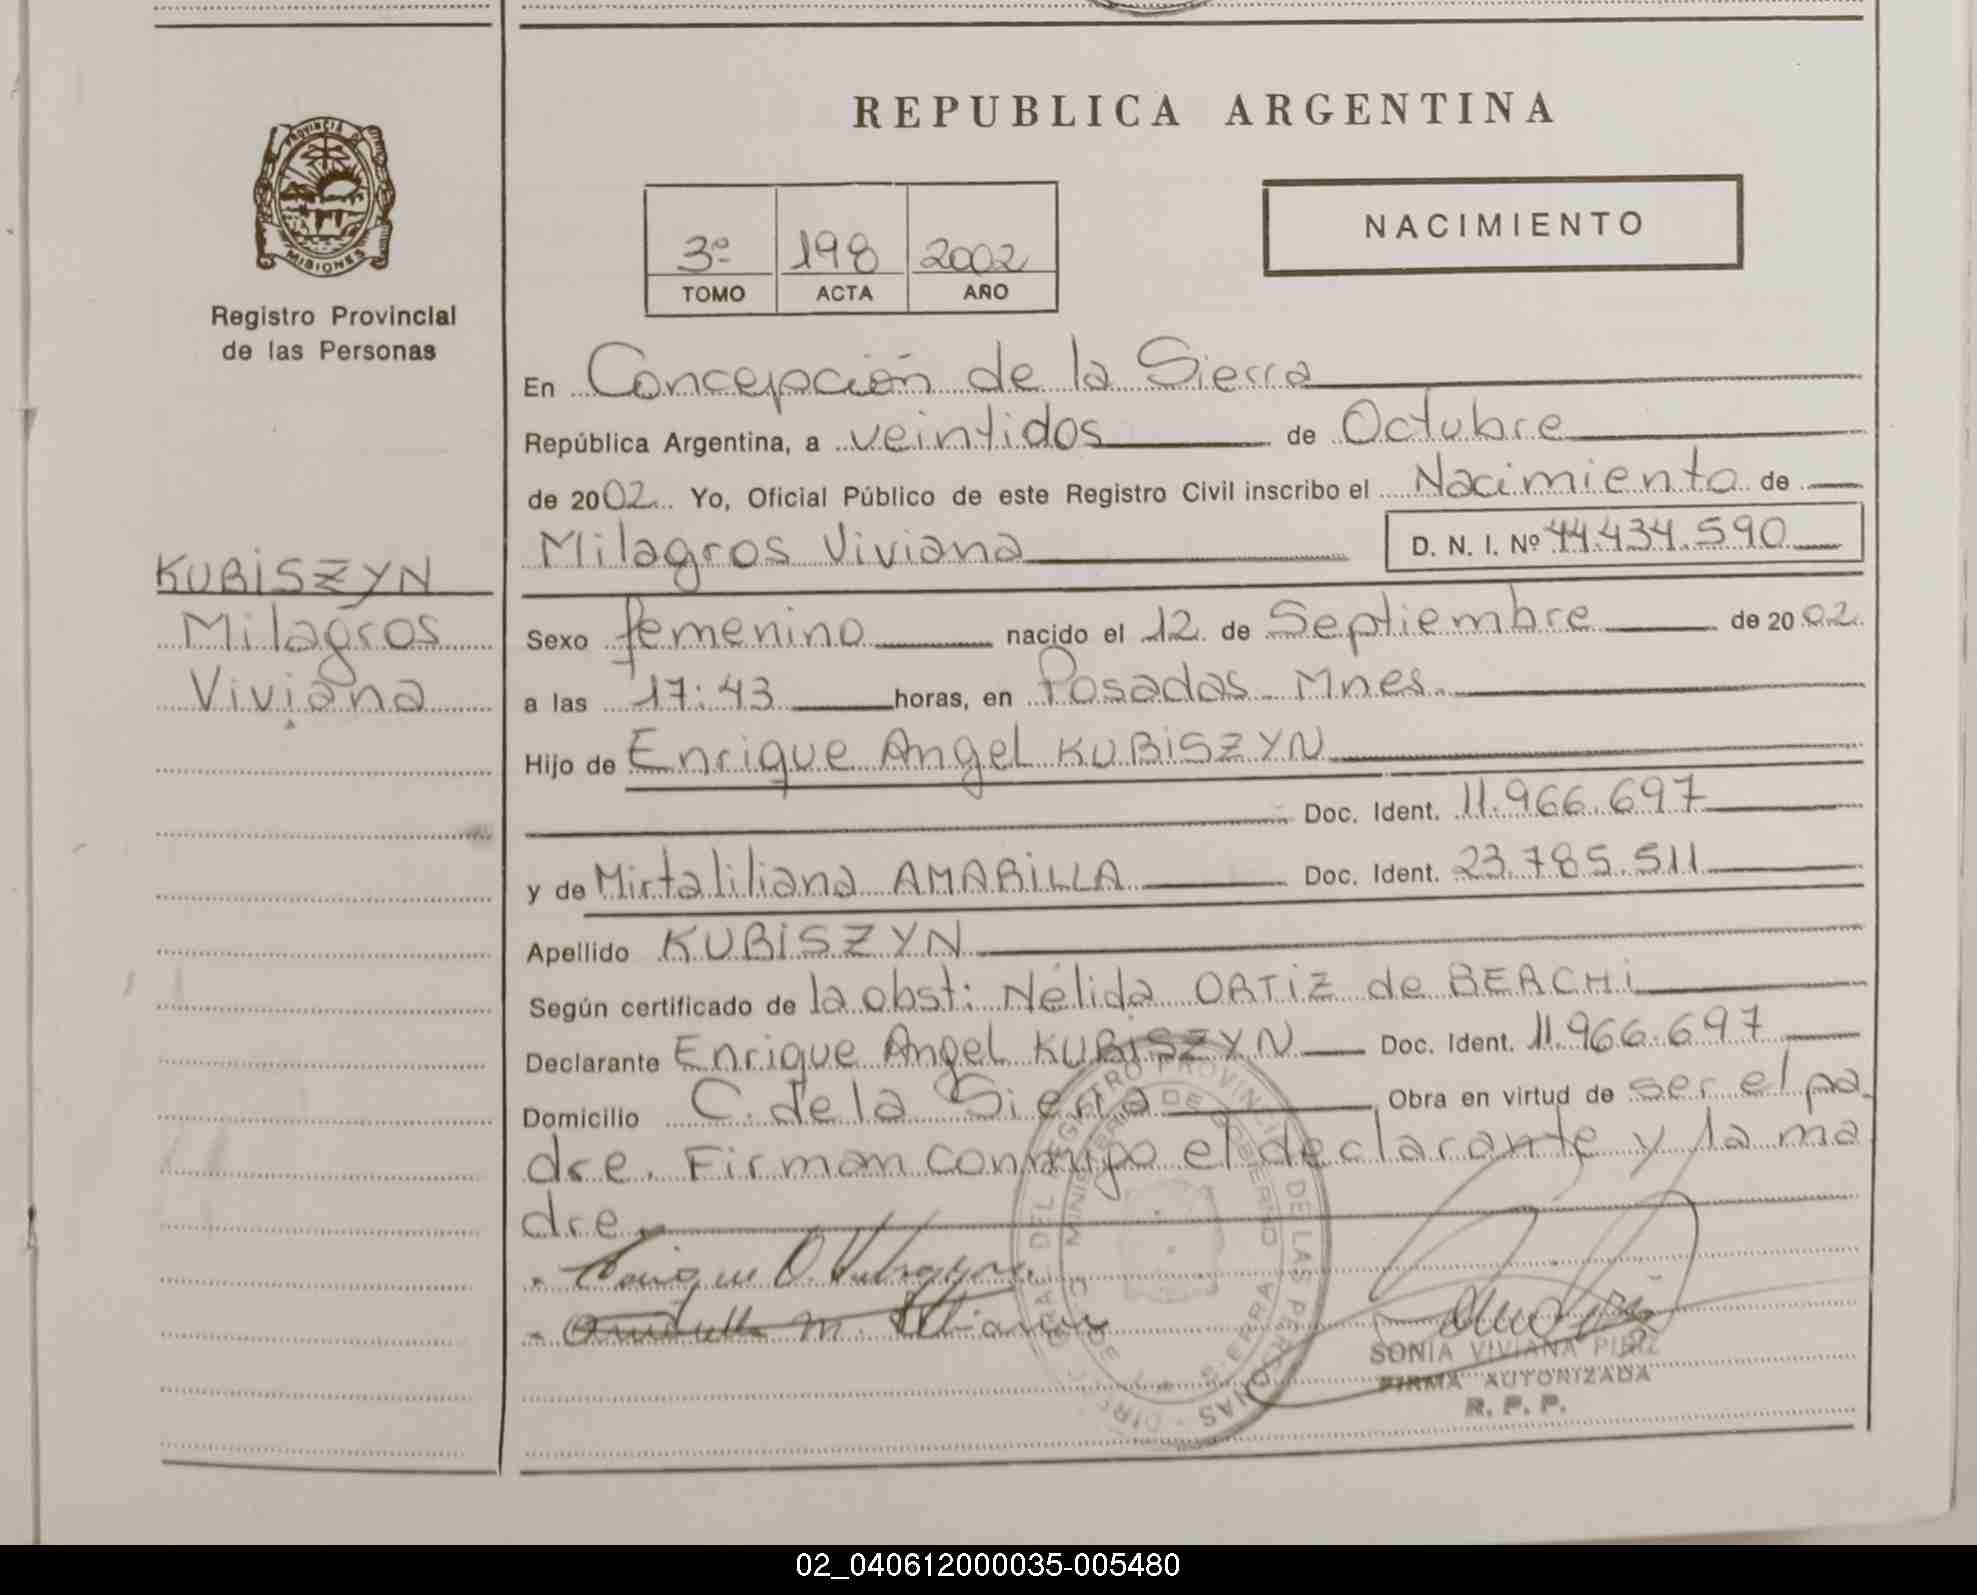 REPUBLICA ARGENTINA
PROVINCIA DE
MISIONES
Registro Provincial
de las Personas
3º 198 2002
TOMO ACTA AÑO
NACIMIENTO
En Concepción de la Sierra
República Argentina, a veintidos de Octubre
de 2002. Yo, Oficial Público de este Registro Civil inscribo el Nacimiento de
Milagros Viviana D. N. I. Nº 44.434.590
KUBISZYN
Milagros
Viviana
Sexo femenino nacido el 12 de Septiembre de 2002
a las 17:43 horas, en Posadas Mnes.
Hijo de Enrique Angel KUBISZYN
Doc. Ident. 11.966.697
y de Mirtaliliana AMARILLA Doc. Ident. 23.785.511
Apellido KUBISZYN
Según certificado de la obst: Nélida ORTIZ de BERCHI
Declarante Enrique Angel KUBISZYN Doc. Ident. 11.966.697
Domicilio C. de la Sierra Obra en virtud de ser el pa
dre. Firman conmigo el declarante y la ma
dre.
SONIA VIVIANA PIRIZ
FIRMA AUTORIZADA
R. P. P.
02_040612000035-005480